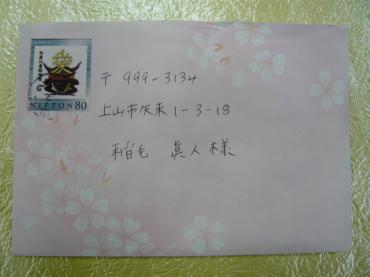 NIPPON 80
〒 999-3134
上山市矢来 1-3-18
稲毛 眞人様